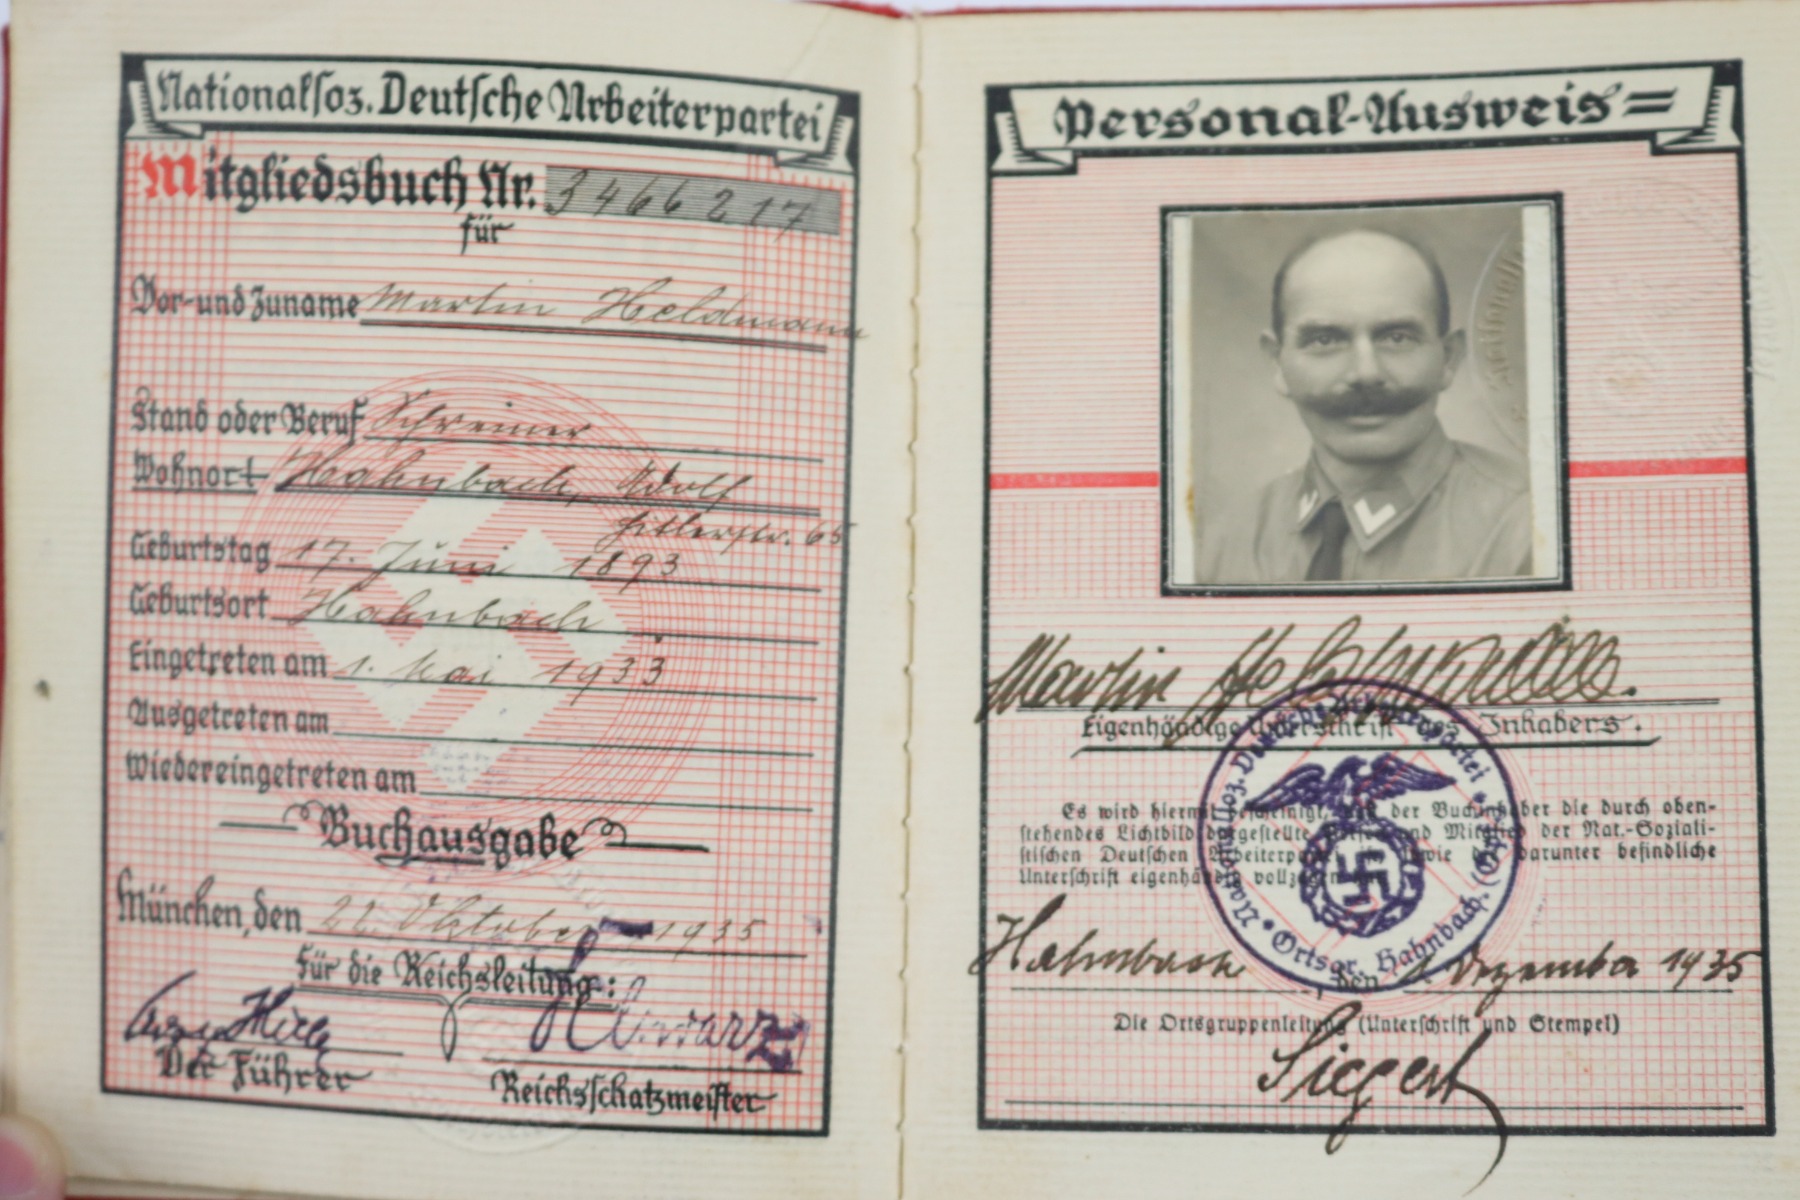 Nationalsoz. Deutsche Arbeiterpartei
Mitgliedsbuch Nr. 3466217
für
Vor- und Zuname Martin Heldmann
Stand oder Beruf Schreiner
Wohnort Hahnbach, Adolf
Hitlerstr. 65
Geburtstag 17. Juni 1893
Geburtsort Hahnbach
Eingetreten am 1. Mai 1933
Ausgetreten am
Wiedereingetreten am
Buchausgabe
München, den 22. Oktober 1935
Für die Reichsleitung:
Schwarz
Der Führer
Reichsschatzmeister
Personal-Ausweis
Martin Heldmann.
Eigenhändige Unterschrift des Inhabers.
Es wird hiermit bescheinigt, daß der Buchinhaber die durch oben-
stehendes Lichtbild dargestellte Person und Mitglied der Nat.-Soziali-
stischen Deutschen Arbeiterpartei ist, sowie die darunter befindliche
Unterschrift eigenhändig vollzogen
Nationalsoz. Deutsche Arbeiterpartei
Ortsgr. Hahnbach, (Opf.)
Hahnbach, den Dezember 1935
Die Ortsgruppenleitung (Unterschrift und Stempel)
Siegert